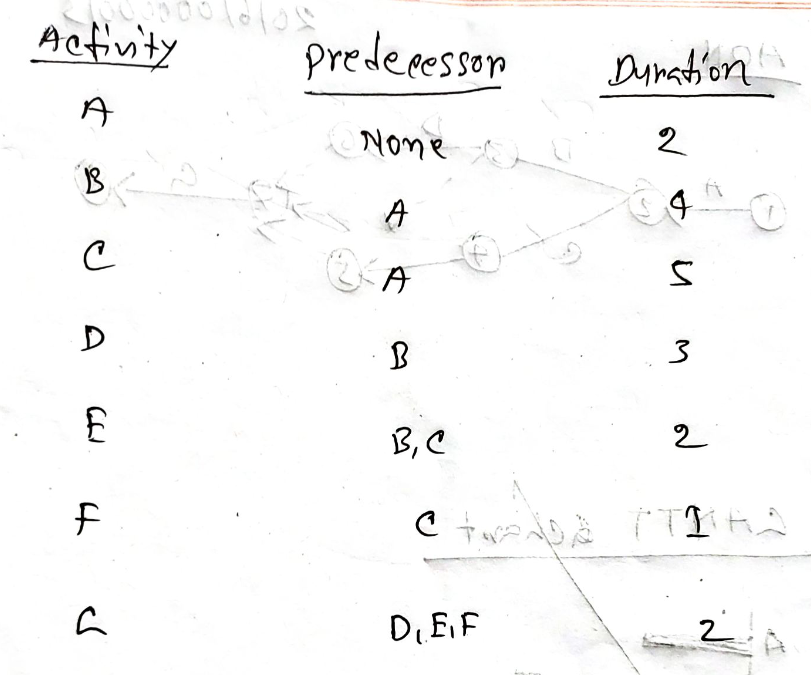 Activity Predecessor Duration
A None 2
B A 4
C A 5
D B 3
E B, C 2
F C 1
G D, E, F 2